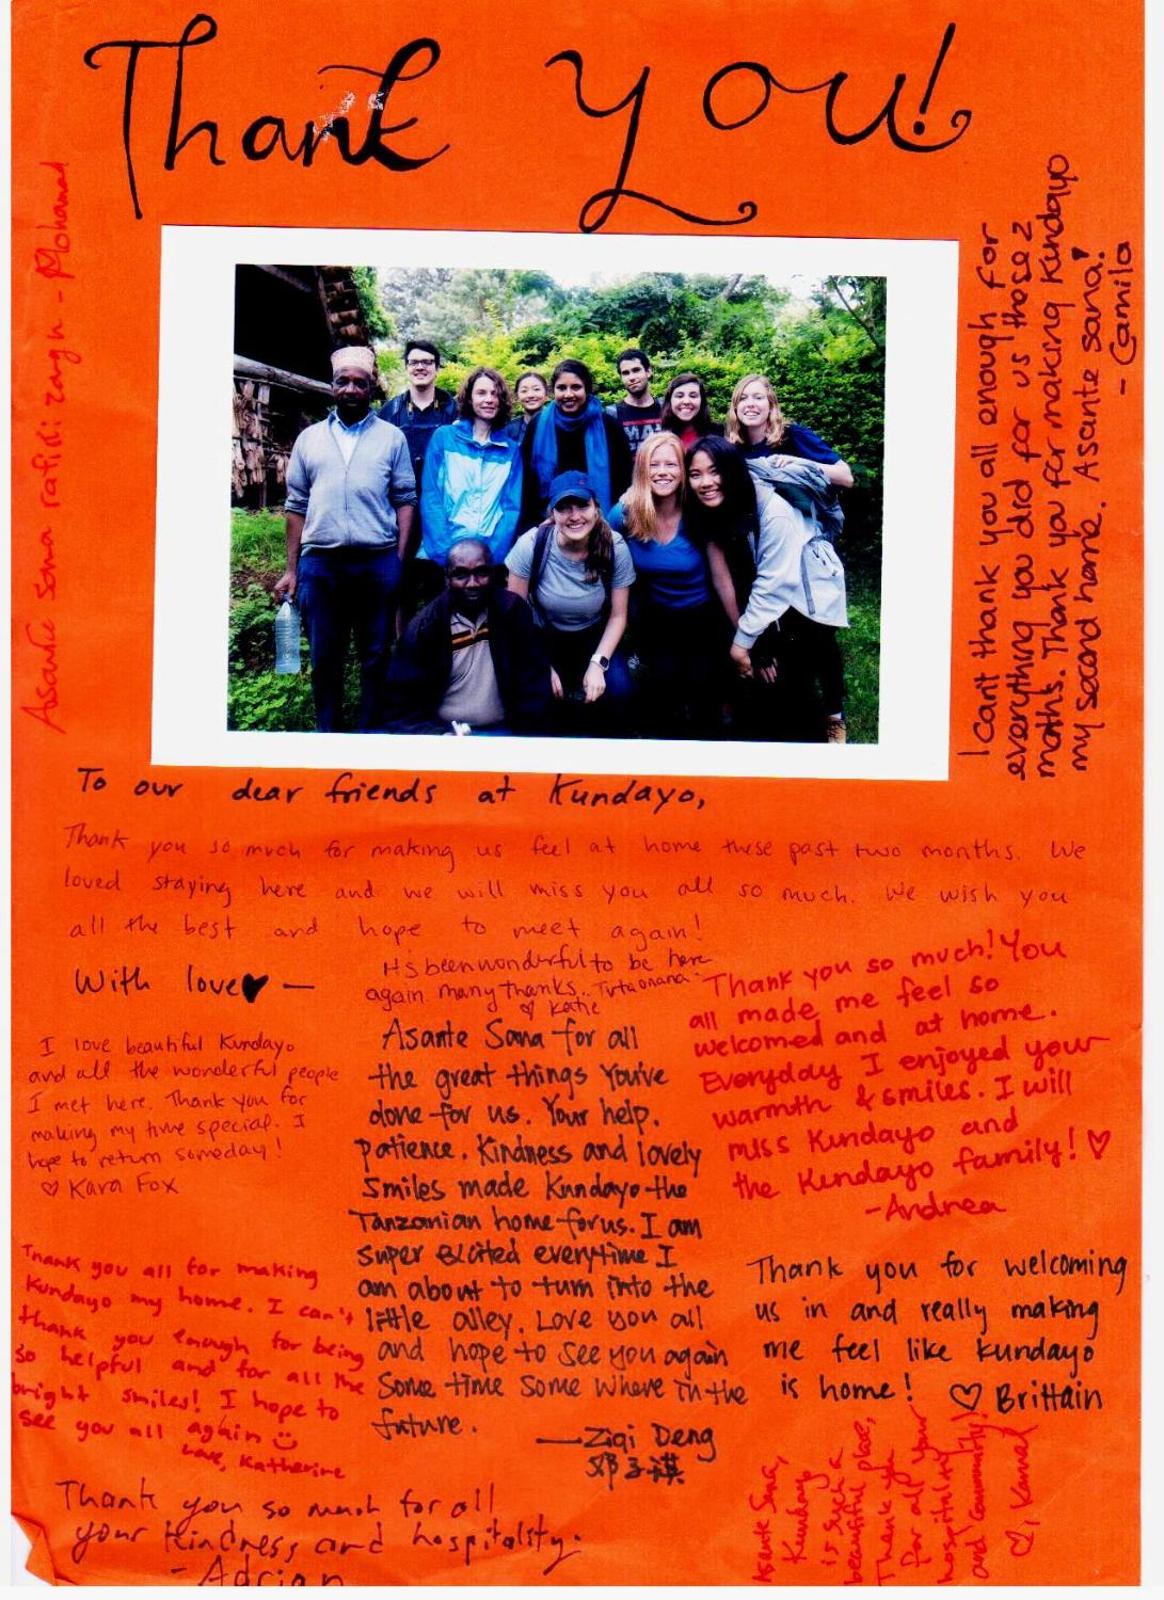 Thank you!
Asante sana rafiki zangu - Mohamad
I can't thank you all enough for
everything you did for us these 2
moths. Thank you for making Kundayo
my second home. Asante sana!
- Camila
To our dear friends at Kundayo,
Thank you so much for making us feel at home these past two months. We
loved staying here and we will miss you all so much. We wish you
all the best and hope to meet again!
With love♥ —
It's been wonderful to be here
again many thanks. Tutaonana.
♡ Katie
I love beautiful Kundayo
and all the wonderful people
I met here. Thank you for
making my time special. I
hope to return someday!
♡ Kara Fox
Asante Sana for all
the great things You've
done for us. Your help,
patience, kindness and lovely
smiles made Kundayo the
Tanzanian home for us. I am
super excited everytime I
am about to turn into the
little alley. Love you all
and hope to see you again
some time some where in the
future.
— Ziqi Deng
邓子祺
Thank you so much! You
all made me feel so
welcomed and at home.
Everyday I enjoyed your
warmth & smiles. I will
miss Kundayo and
the Kundayo family! ♡
- Andrea
Thank you all for making
Kundayo my home. I can't
thank you enough for being
so helpful and for all the
bright smiles! I hope to
see you all again
Love, Katherine
Thank you for welcoming
us in and really making
me feel like kundayo
is home! ♡ Brittain
Thank you so much for all
your kindness and hospitality.
- Adrian
Asante Sana,
Kundayo
is such a
beautiful place,
Thank you
for all your
hospitality
and community!
♡,